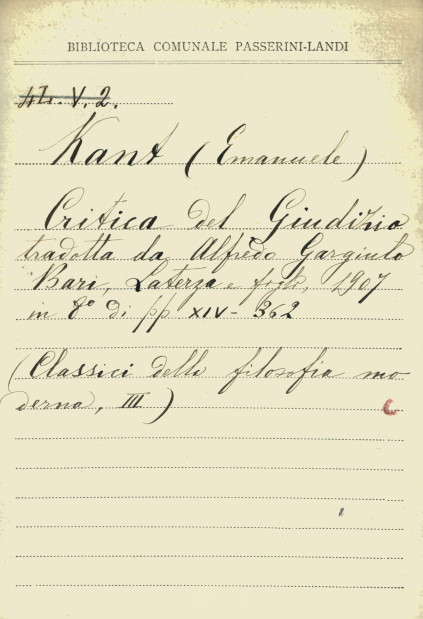 BIBLIOTECA COMUNALE PASSERINI-LANDI
4L. V. 2.
Kant (Emanuele)
Critica del Giudizio
tradotta da Alfredo Gargiulo
Bari, Laterza e figli, 1907
in 8º di pp XIV - 362
(Classici della filosofia mo
derna, III)